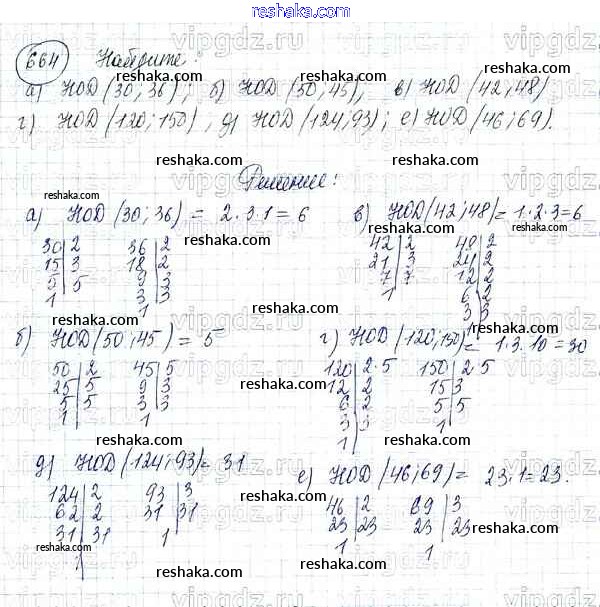 664 Найдите:
а) НОД (30; 36); б) НОД (50; 45); в) НОД (42; 48)
г) НОД (120; 150); д) НОД (124; 93); е) НОД (46; 69).
Решение:
а) НОД (30; 36) = 2·3·1 = 6
30 | 2
15 | 3
5 | 5
1
36 | 2
18 | 2
9 | 3
3 | 3
1
в) НОД (42; 48) = 1·2·3 = 6
42 | 2
21 | 3
7 | 7
1
48 | 2
24 | 2
12 | 2
6 | 2
3 | 3
1
б) НОД (50; 45) = 5
50 | 2
25 | 5
5 | 5
1
45 | 5
9 | 3
3 | 3
1
г) НОД (120; 150) = 1·3·10 = 30
120 | 2·5
12 | 2
6 | 2
3 | 3
1
150 | 2·5
15 | 3
5 | 5
1
д) НОД (124; 93) = 31
124 | 2
62 | 2
31 | 31
1
93 | 3
31 | 31
1
е) НОД (46; 69) = 23·1 = 23.
46 | 2
23 | 23
1
69 | 3
23 | 23
1
reshaka.com
vipgdz.ru